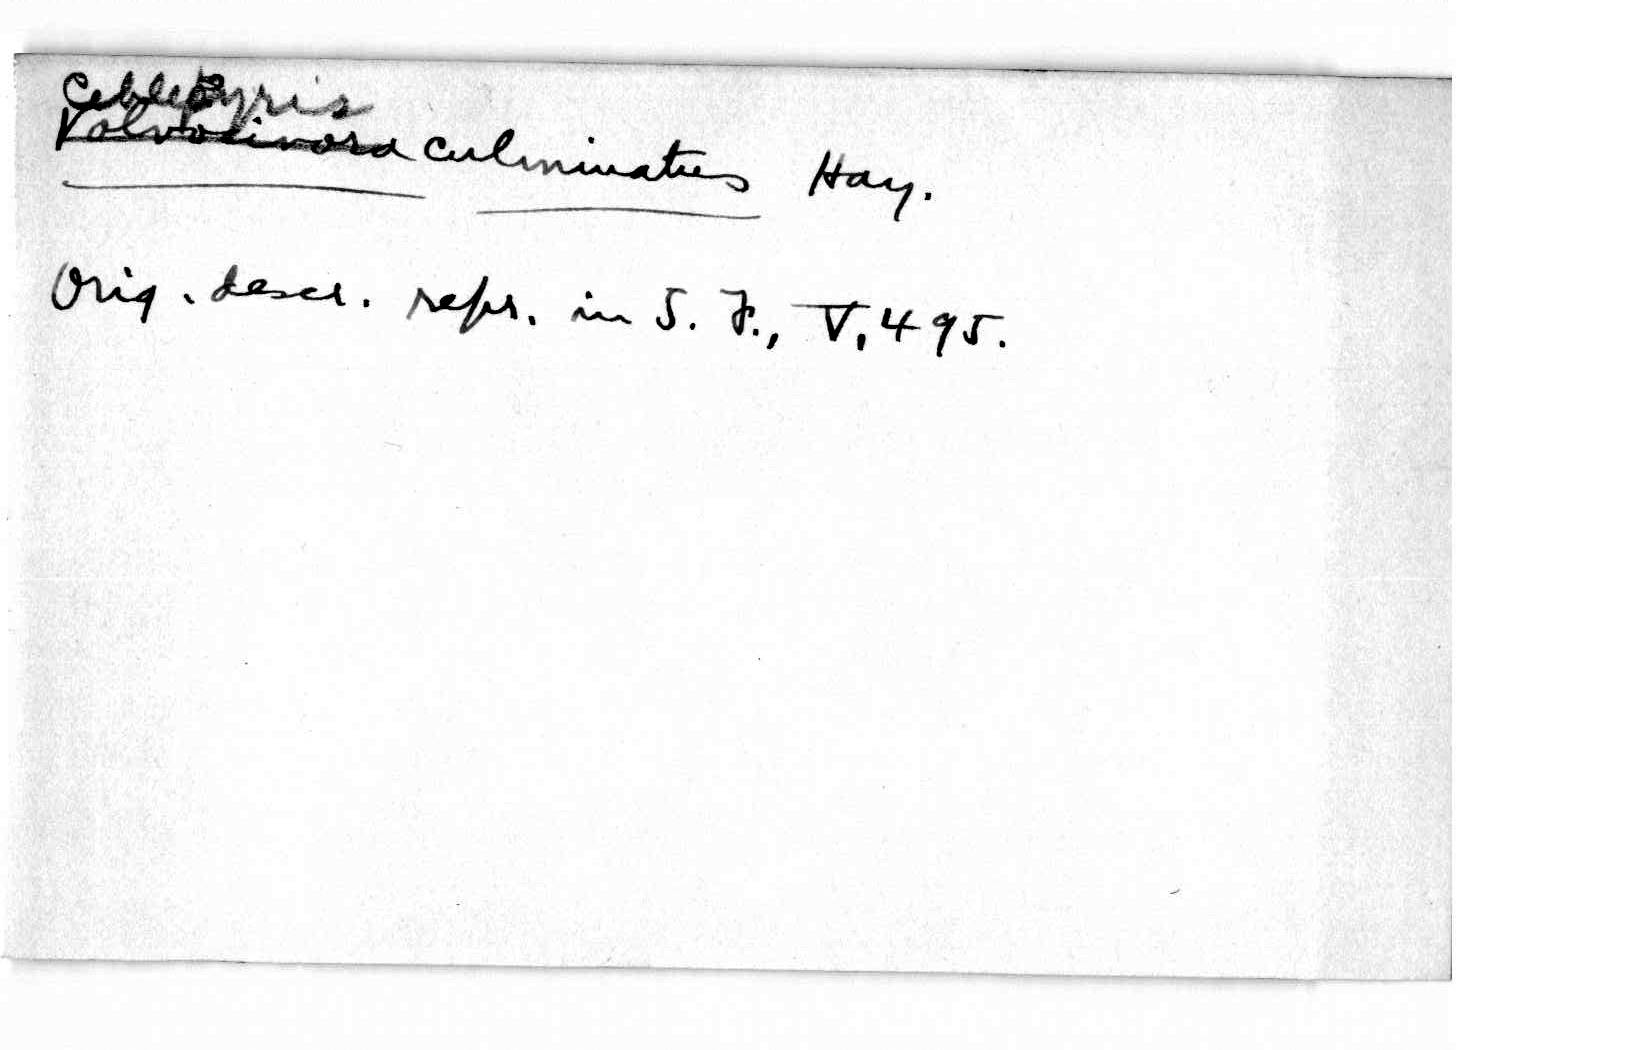 Ceblepyris
Volvocivora culminatus Hay.
Orig. descr. repr. in S. F., V, 495.